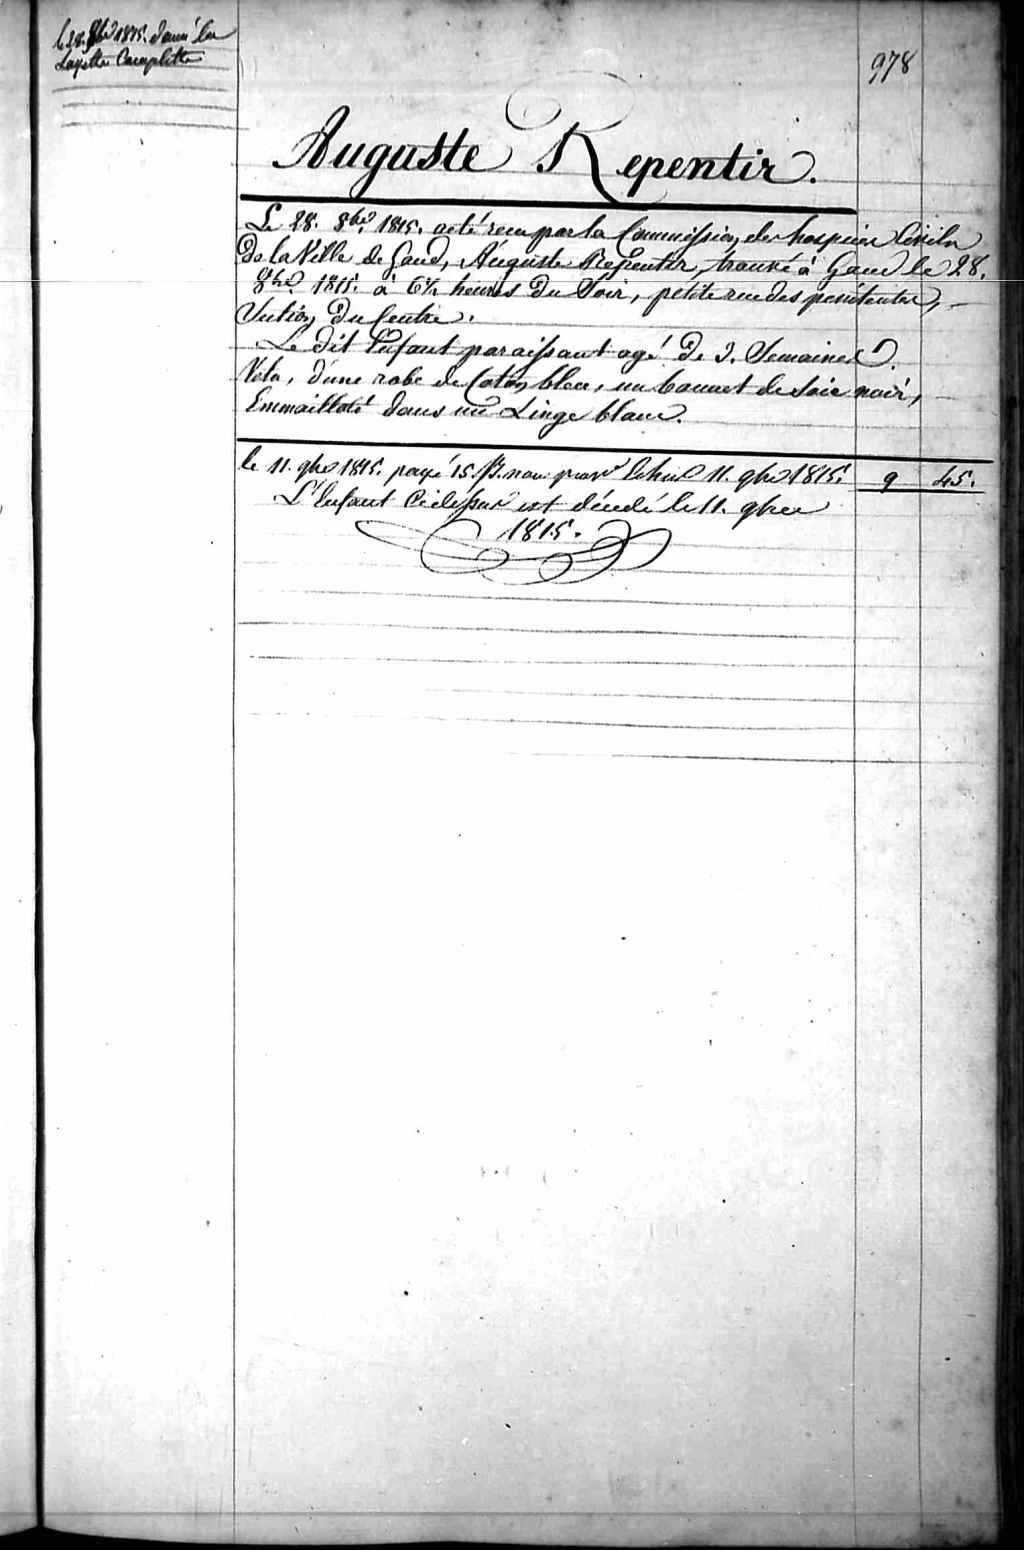 le 28. 8bre 1815. donné la
Layette Complette
978
Auguste Repentir.
Le 28. 8bre 1815. a été reçu par la Commission des hospices Civils
de la Ville de Gand, Auguste Repentir, trouvé à Gand le 28.
8bre 1815. à 6½ heures du Soir, petite rue des penitentes,
Section du Centre.
Le dit Enfant paraissant agé de 3. Semaines.
Vetu, d'une robe de Coton bleu, un bonnet de Soie noir,
Emmailloté dans un Linge blanc.
le 11. 9bre 1815. payé 15. 11. 9bre 1815. 9 45.
L'Enfant Cidessus est décédé le 11. 9bre
1815.